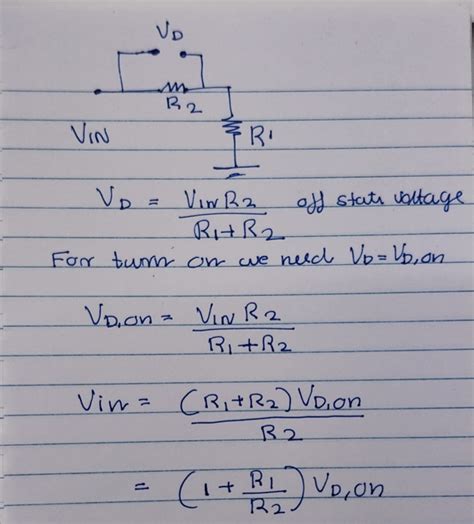 VD
R2
VIN
R1
VD = VIN R2 / R1+R2 off state voltage
For turn on we need VD = VD,on
VD,on = VIN R2 / R1+R2
Vin = (R1+R2) VD,on / R2
= (1 + R1/R2) VD,on